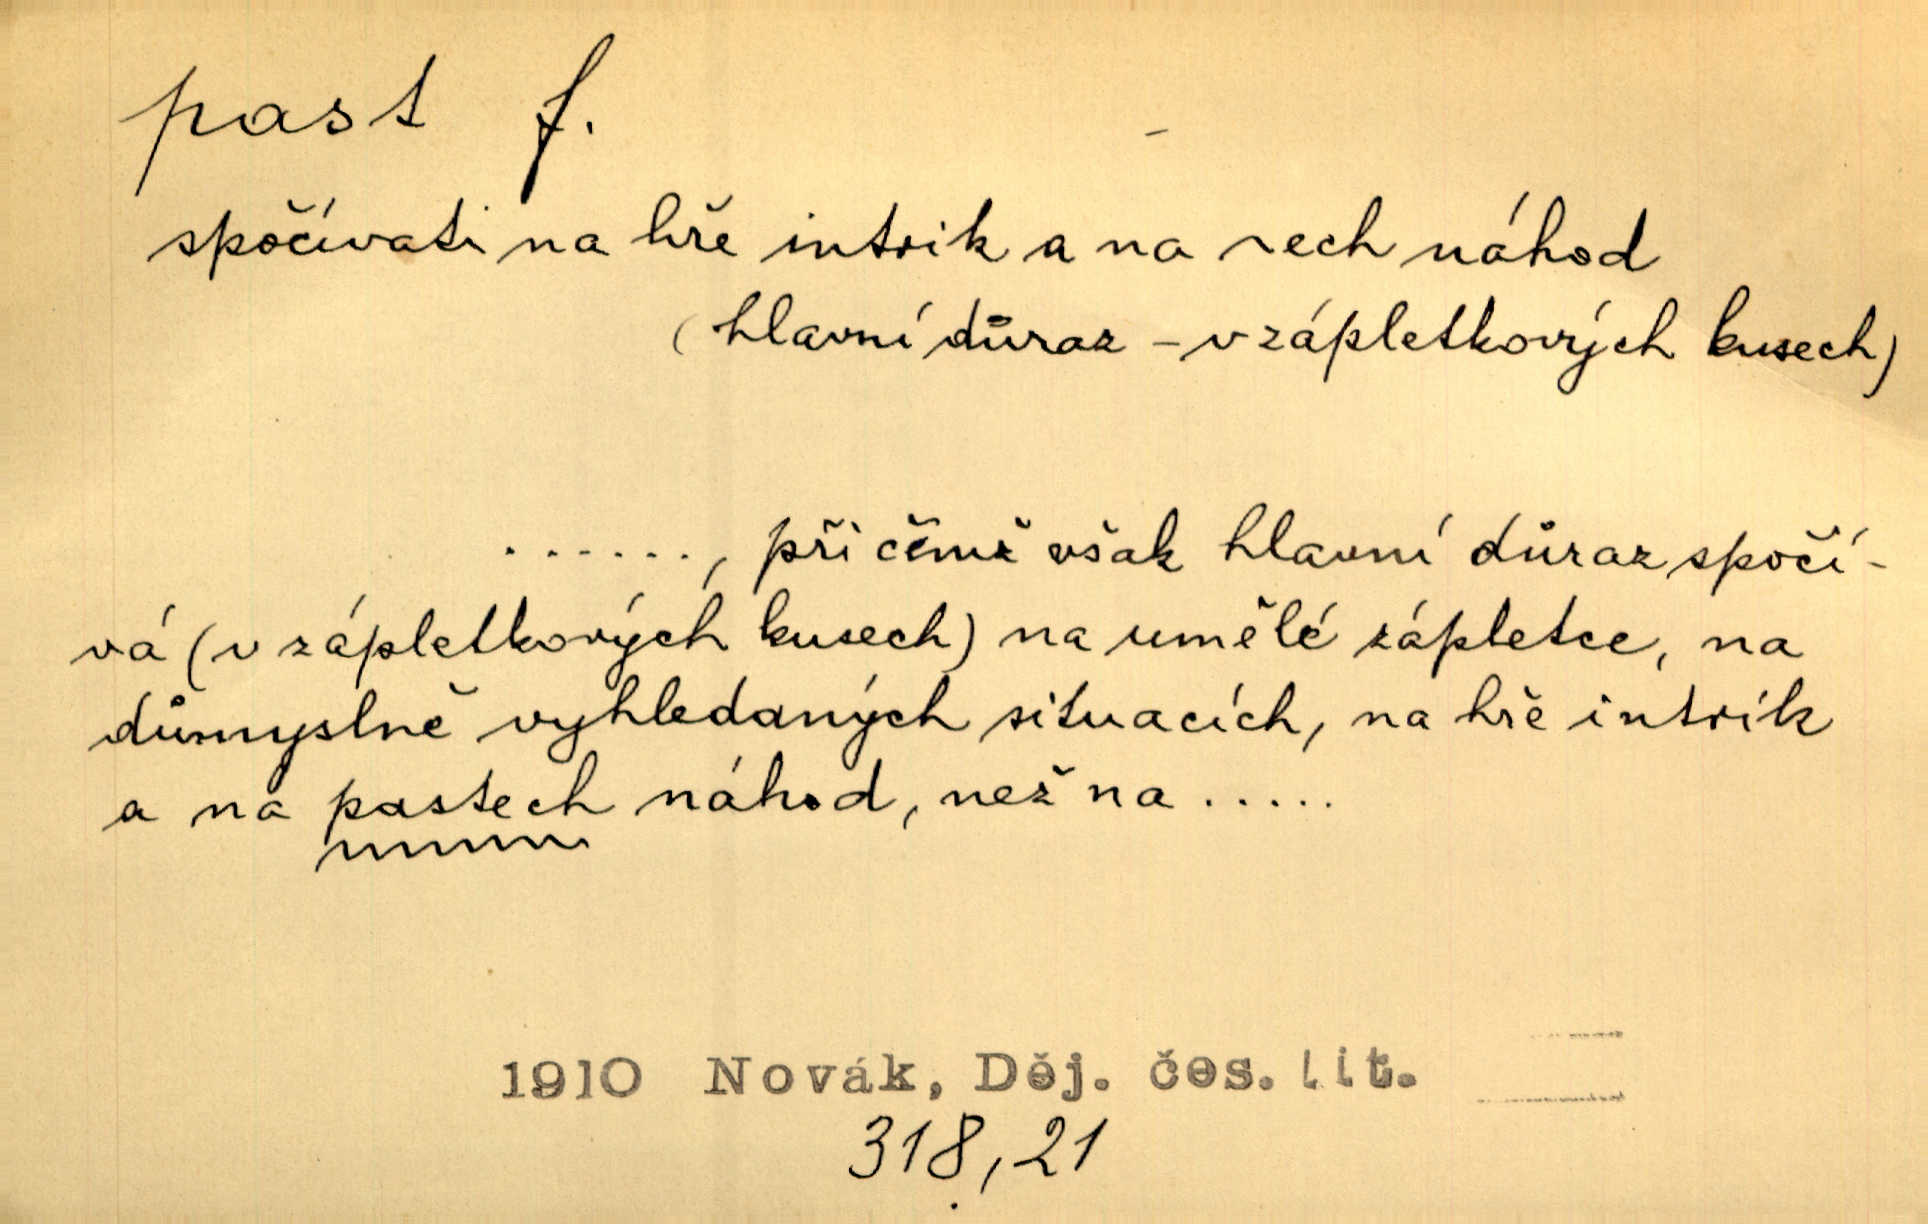 past f.
spočívati na hře intrik a na ~ech náhod
(hlavní důraz - v zápletkových kusech)
......, při čemž však hlavní důraz spočí-
vá (v zápletkových kusech) na umělé zápletce, na
důmyslně vyhledaných situacích, na hře intrik
a na pastech náhod, než na .....
1910 Novák, Děj. čes. lit.
318,21